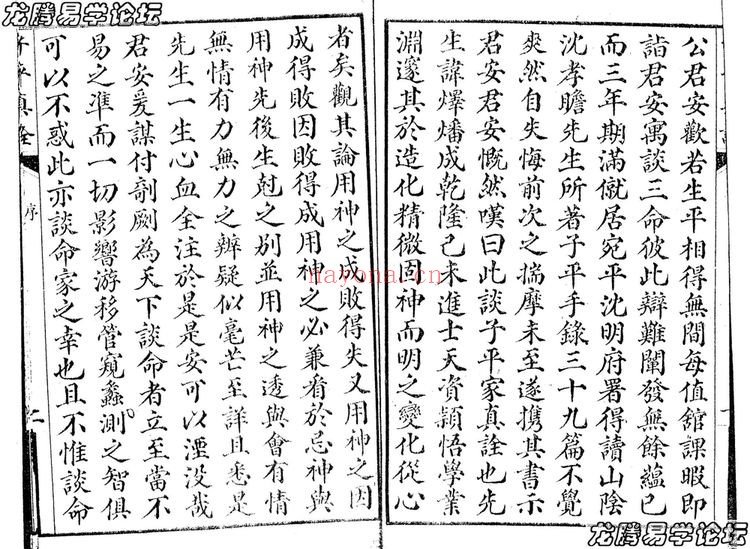 龙腾易学论坛
公君安歡若生平相得無間每值舘課暇即
詣君安寓談三命彼此辯難闡發無餘蘊已
而三年期滿僦居宛平沈明府署得讀山陰
沈孝瞻先生所著子平手錄三十九篇不覺
爽然自失悔前次之揣摩未至遂携其書示
君安君安慨然嘆曰此談子平家真詮也先
生諱燡燔成乾隆己未進士天資頴悟學業
淵邃其於造化精微固神而明之變化從心
者矣觀其論用神之成敗得失又用神之因
成得敗因敗得成用神之必兼看於忌神與
用神先後生尅之别並用神之透與會有情
無情有力無力之辨疑似毫芒至詳且悉是
先生一生心血全注於是是安可以湮没哉
君安爰謀付剞劂為天下談命者立至當不
易之準而一切影響游移管窺蠡測之智俱
可以不惑此亦談命家之幸也且不惟談命
序
nayona.cn
龙腾易学论坛